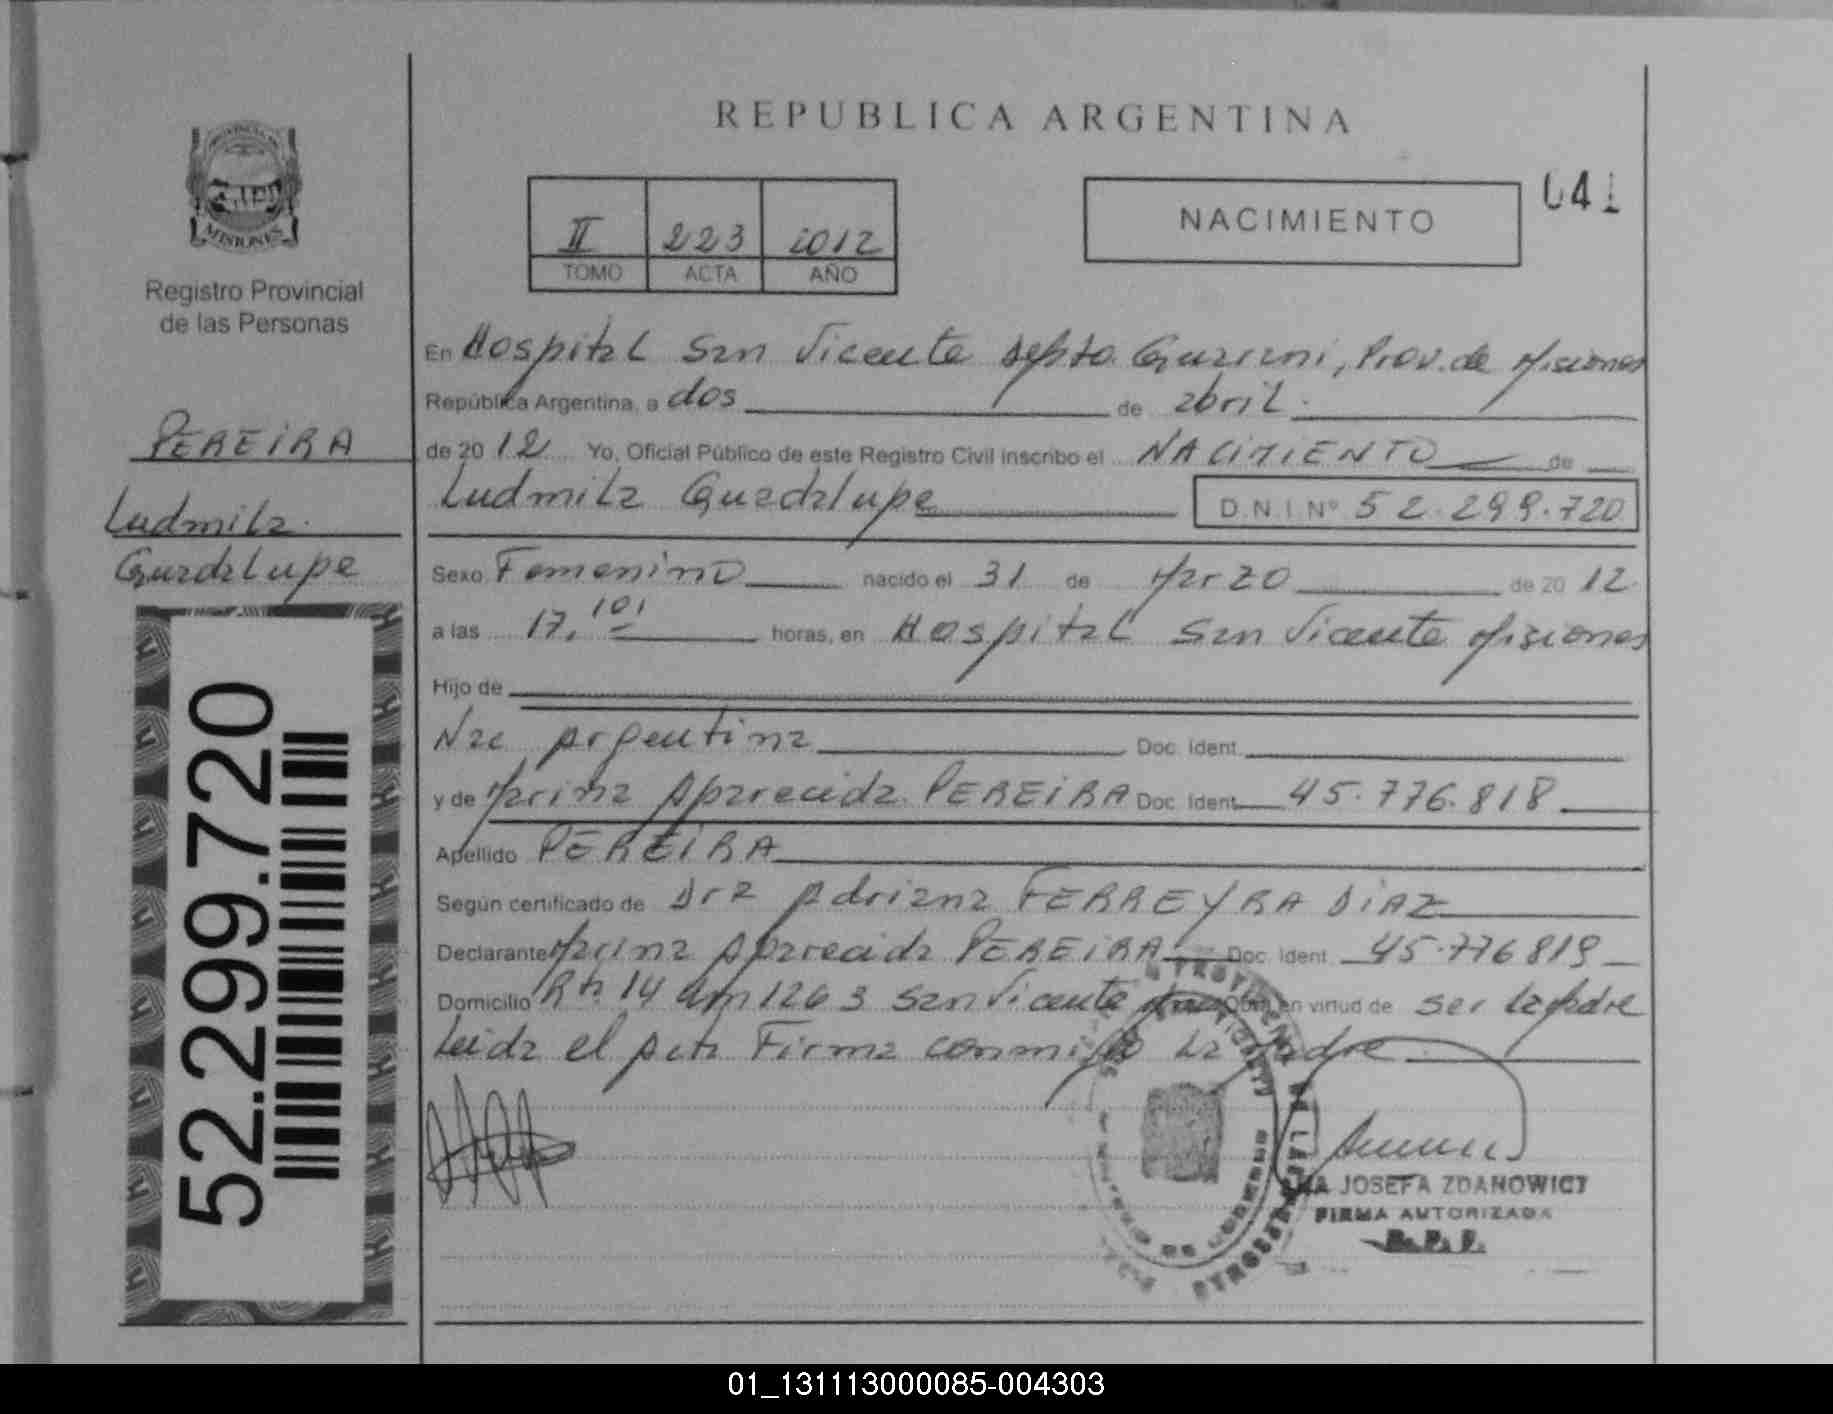 REPUBLICA ARGENTINA
041
II 223 2012
TOMO ACTA AÑO
NACIMIENTO
MISIONES
Registro Provincial
de las Personas
PEREIRA
Ludmila
Guadalupe
52.299.720
En Hospital San Vicente depto. Guarani, Prov. de Misiones
República Argentina, a dos de abril.
de 20 12 Yo, Oficial Público de este Registro Civil inscribo el NACIMIENTO de
Ludmila Guadalupe D.N.I. Nº 52.299.720
Sexo Femenino nacido el 31 de Marzo de 20 12.
a las 17,10 horas, en Hospital San Vicente Misiones
Hijo de
Nac Argentina Doc. Ident.
y de Marina Aparecida PEREIRA Doc. Ident. 45.776.818
Apellido PEREIRA
Según certificado de Dra Adriana FERREYRA DIAZ
Declarante Marina Aparecida PEREIRA Doc. Ident. 45.776819
Domicilio Rta 14 km 1263 San Vicente en virtud de ser la Madre
Leida el Acta Firma conmigo La Madre
JOSEFA ZDANOWICZ
FIRMA AUTORIZADA
R.P.P.
01_131113000085-004303